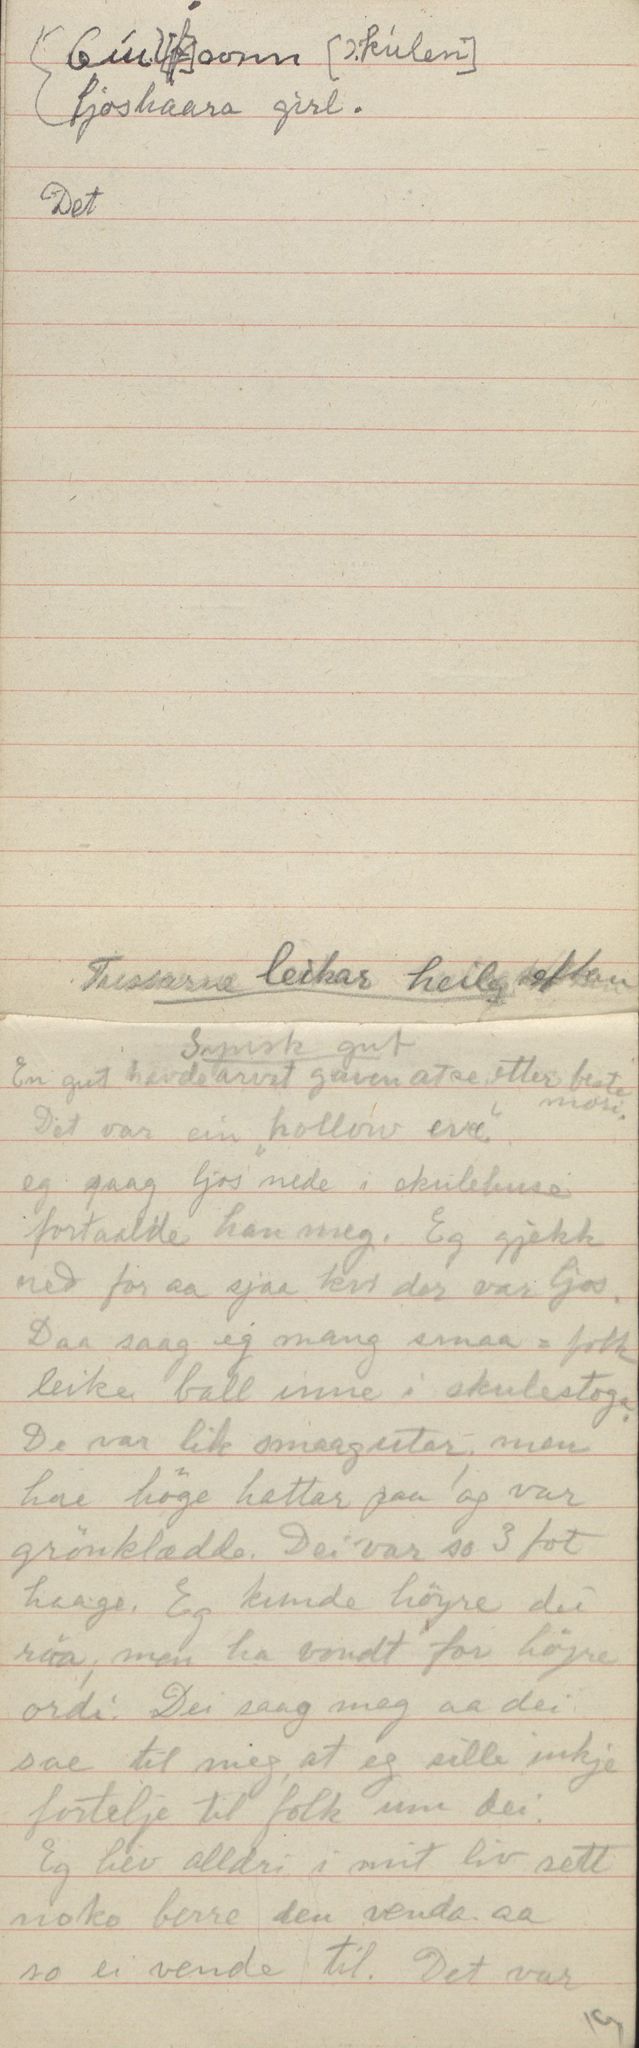 sonn [skúlen]
ljoshaara girl.
Det
Tussarne leikar heilg eftan
Synsk gut
En gut havde arvet gaven at se etter beste
mori.
Det var ein "hollow eve"
eg saag ljos nede i skulehuse
fortaalde han meg. Eg gjekk
ned for aa sjaa kvi der var ljos.
Daa saag eg mang smaa = folk
leike ball inne i skulestoga.
De var lik smaagutar, men
have höge hattar paa og var
grönklædde. Dei var so 3 fot
haage. Eg kunde höyre dei
röa, men ha vondt for höyre
ordi. Dei saag meg aa dei
sae til meg, at eg sille inkje
fortelje til folk um dei.
Eg hev alldri i mit liv sett
noko berre den venda aa
so ei vende til. Det var